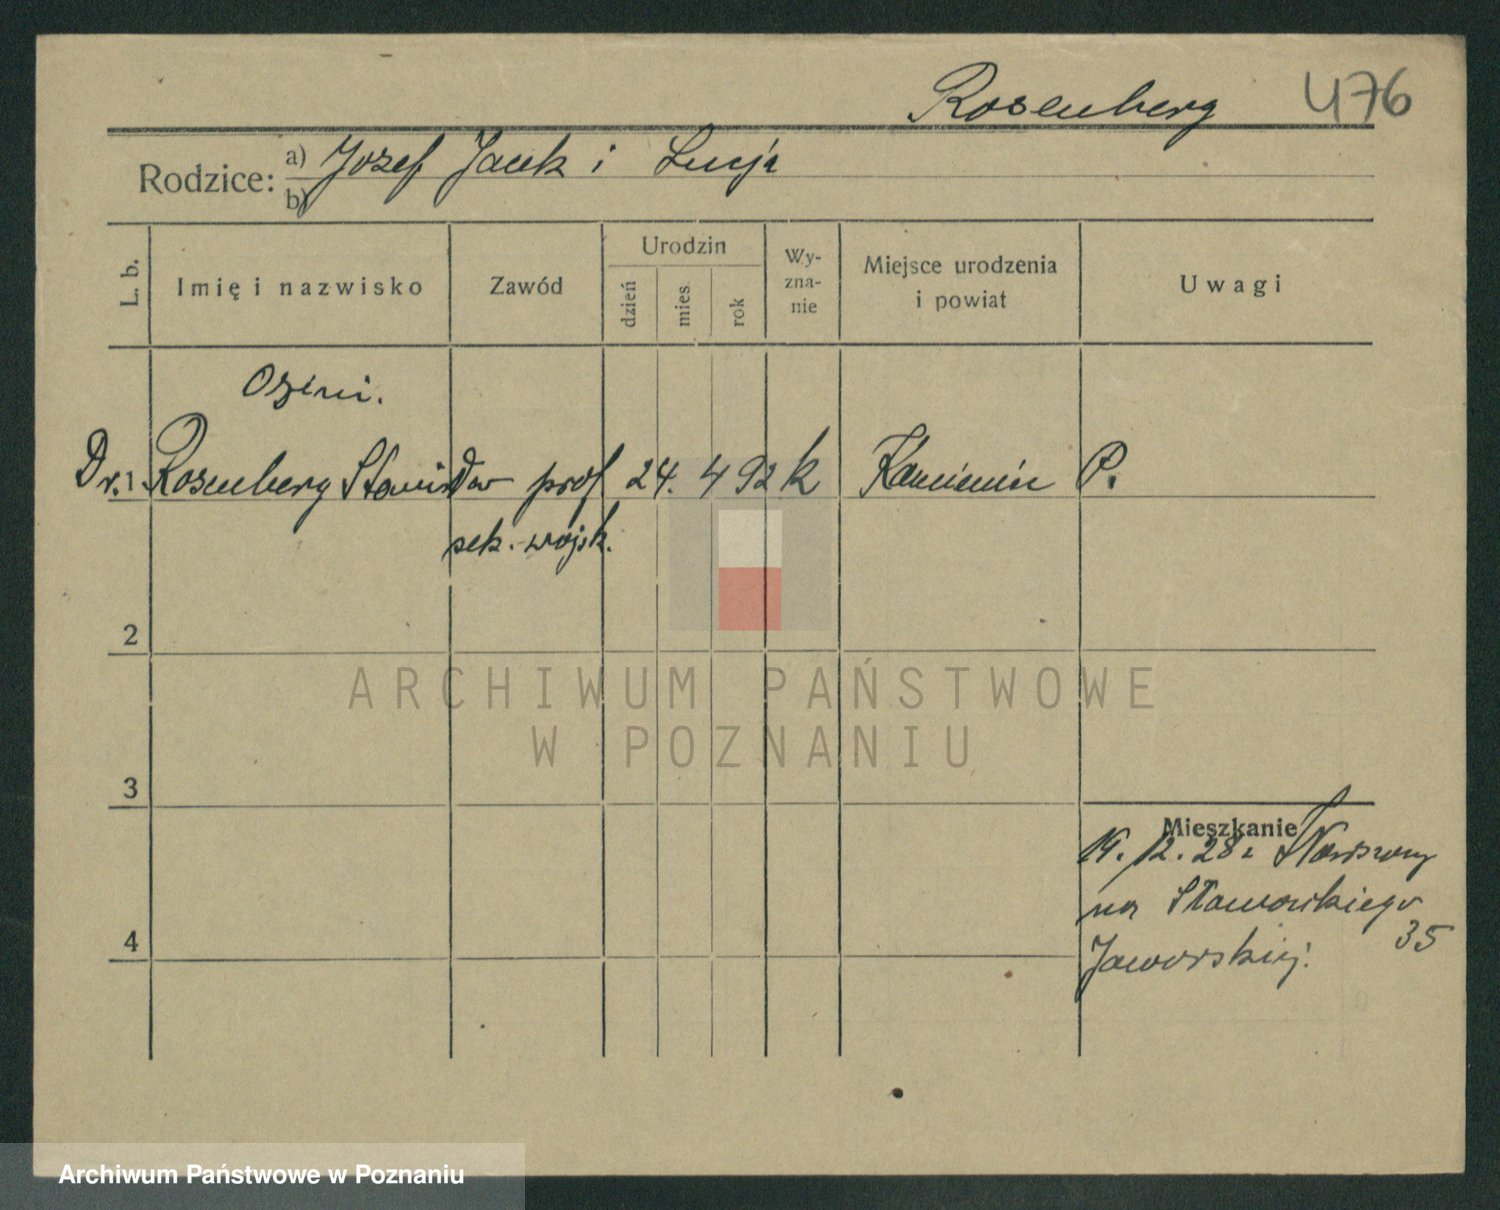 Rosenberg 476
Rodzice: a) Jozef Jacek i Lucja
b)
L. b.
Imię i nazwisko
Zawód
Urodzin
dzień
mies
rok
Wy-
zna-
nie
Miejsce urodzenia
i powiat
Uwagi
Dr. 1 Rosenberg Stanisław prof 24. 4 92 k P.
sek. wojsk.
2
3
4
Mieszkanie
14. 12. 28 z Warszawy
na Sławowskiego
35
Jaworskiej.
ARCHIWUM PAŃSTWOWE
W POZNANIU
Archiwum Państwowe w Poznaniu